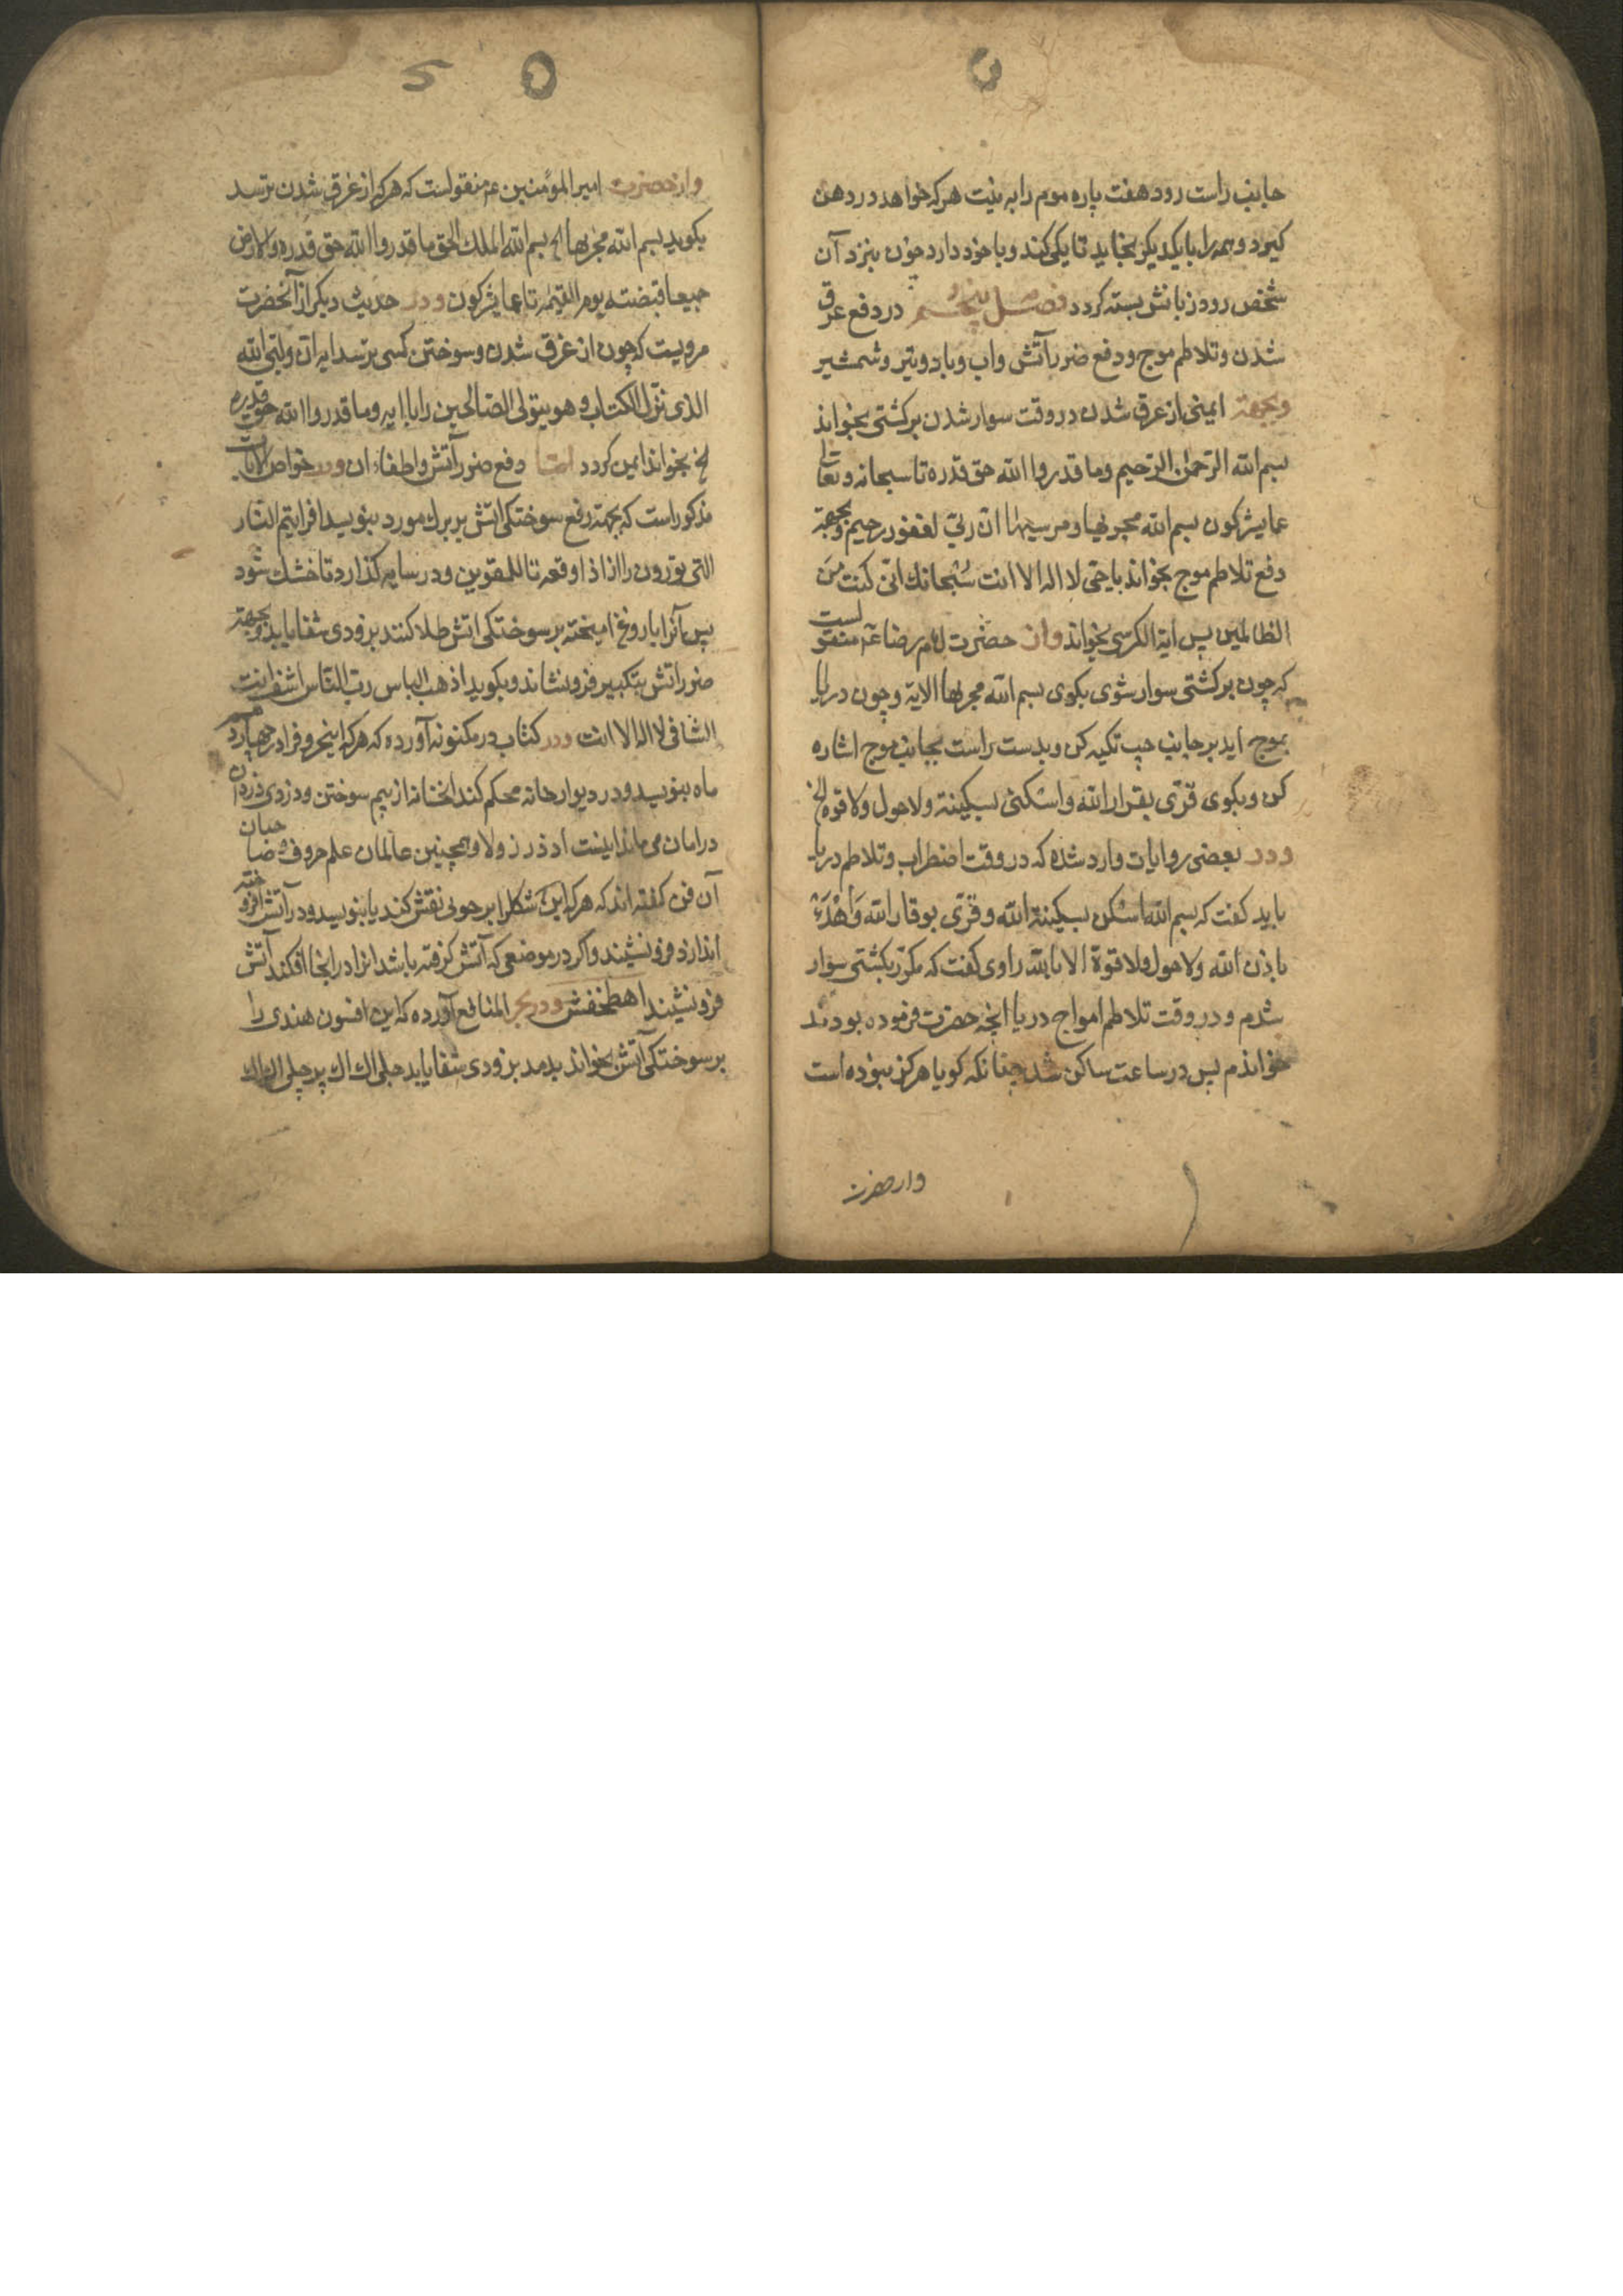 جانب راست رود هفت پاره موم را به نیت هر که خواهد در دهن
کیرد و همه را با یکدیکر بخاید تا یکی کند و با خود دارد چون بنزد آن
شخص رود زبانش بسته کردد فصل پنجم در دفع غرق
شدن و تلاطم موج و دفع ضرر آتش و اب و باد و تیر و شمشیر
و بجهة ایمنی از غرق شدن در وقت سوار شدن بر کشتی بخواند
بسم الله الرحمن الرحیم وما قدروا الله حق قدره تا سبحانه و تعا
عما یشرکون بسم الله مجریها و مرسیها ان ربی لغفور رحیم و بجهة
دفع تلاطم موج بخواند یا حی لا اله الا انت سبحانك انی کنت من
الظالمین پس ایة الکرسی بخواند و از حضرت امام رضا ع منقولست
که چون بر کشتی سوار شوی بکوی بسم الله مجریها الایة و چون دریا
بموج اید بر جانب چپ تکیه کن و بدست راست بجانب موج اشاره
کن و بکوی قرّی بقرار الله و اسکنی بسکینة ولا حول ولا قوة الخ
و در بعضی روایات وارد شده که در وقت اضطراب و تلاطم دریا
باید کفت که بسم الله اسکن بسکینة الله و قرّی بوقار الله واهدء
باذن الله ولا حول ولا قوة الا بالله راوی کفت که مکرّر بکشتی سوار
شدم و در وقت تلاطم امواج دریا انچه حضرت فرموده بودند
خواندم پس در ساعت ساکن شد چنانکه کویا هرکز نبوده است
واز حضرت
۵ ۵
و از حضرت امیر المؤمنین ع منقولست که هر که از غرق شدن ترسد
بکوید بسم الله مجریها الخ بسم الله الملك الحق ما قدروا الله حق قدره والارض
جمیعا قبضته یوم القیمة تا عما یشرکون و در حدیث دیکر از آنحضرت
مرویست که چون از غرق شدن و سوختن کسی ترسد ایه ان ولیی الله
الذی نزل الکتاب و هو یتولی الصالحین را با ایه وما قدروا الله حق قدره
الخ بخواند ایمن کردد امّا دفع ضرر آتش و اطفاء ان و در خواص الایات
مذکور است که بجهة رفع سوختکی اتش بر برك مورد بنویسد افرایتم النار
التی تورون را از اذا وقعه تا للمقوین و در سایه کذارد تا خشك شود
پس آنرا با روغن امیخته بر سوختکی اتش طلا کنند بزودی شفا یابد و بجهة
ضرر اتش بتکبیر فرو نشاند و بکوید اذهب الباس رب الناس اشف انت
الشافی لا اله الا انت و در کتاب در مکنونه آورده که هر که اینحروفرا در چهارم
ماه بنویسد و در دیوار خانه محکم کند انخانه از بیم سوختن و دزدی
در امان می ماند اینست ا د ذ ر ز و لا و همچنین عالمان علم حروف و صاحبان
آن فن کفته اند که هر که این شکلرا بر چوبی نقش کند یا بنویسد و در آتش افروخته
اندازد فرو نشیند و اکر در موضعی که آتش کرفته باشد انرا در انجا افکند آتش
فرو نشیند اهطمخفش و در بحر المنافع آورده که این افسون هندی را
بر سوختکی آتش بخواند بدمد بزودی شفا یابد